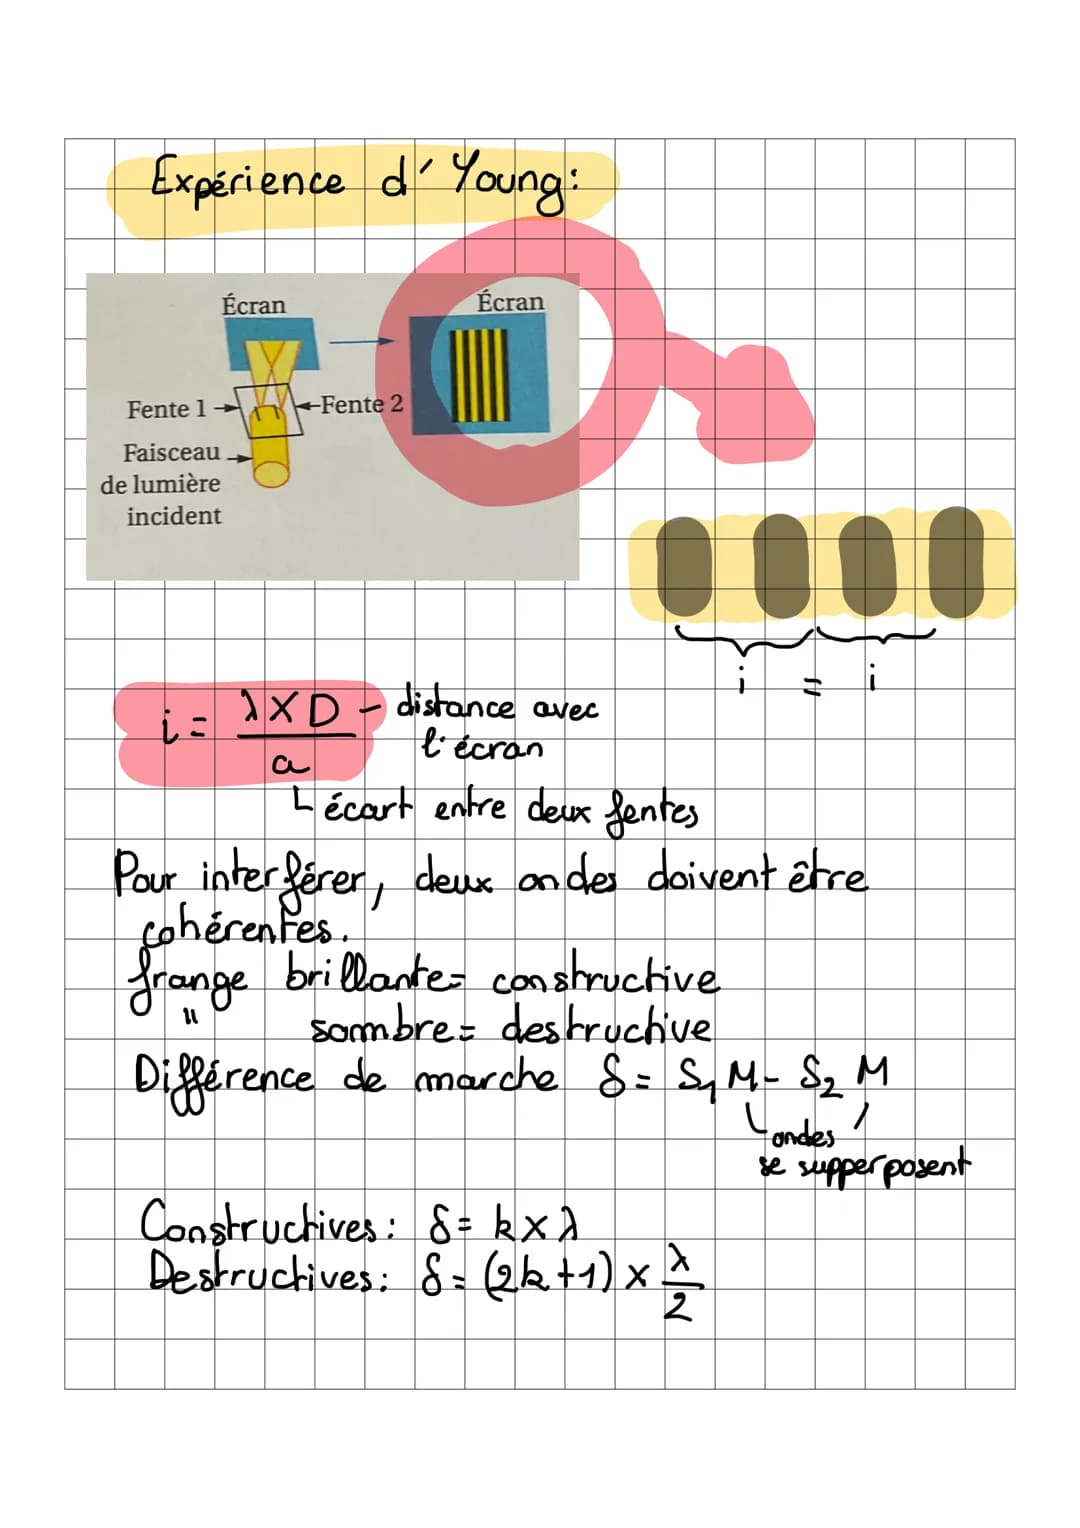 Expérience d'Young:
Écran
Écran
Fente 1
Fente 2
Faisceau
de lumière
incident
i = i
i = λ×D/a - distance avec
l'écran
écart entre deux fentes
Pour interférer, deux ondes doivent être
cohérentes.
frange brillante= constructive
" sombre= destructive
Différence de marche δ= S₁M- S₂M
ondes
se supperposent
Constructives: δ= k×λ
Destructives: δ= (2k+1)×λ/2